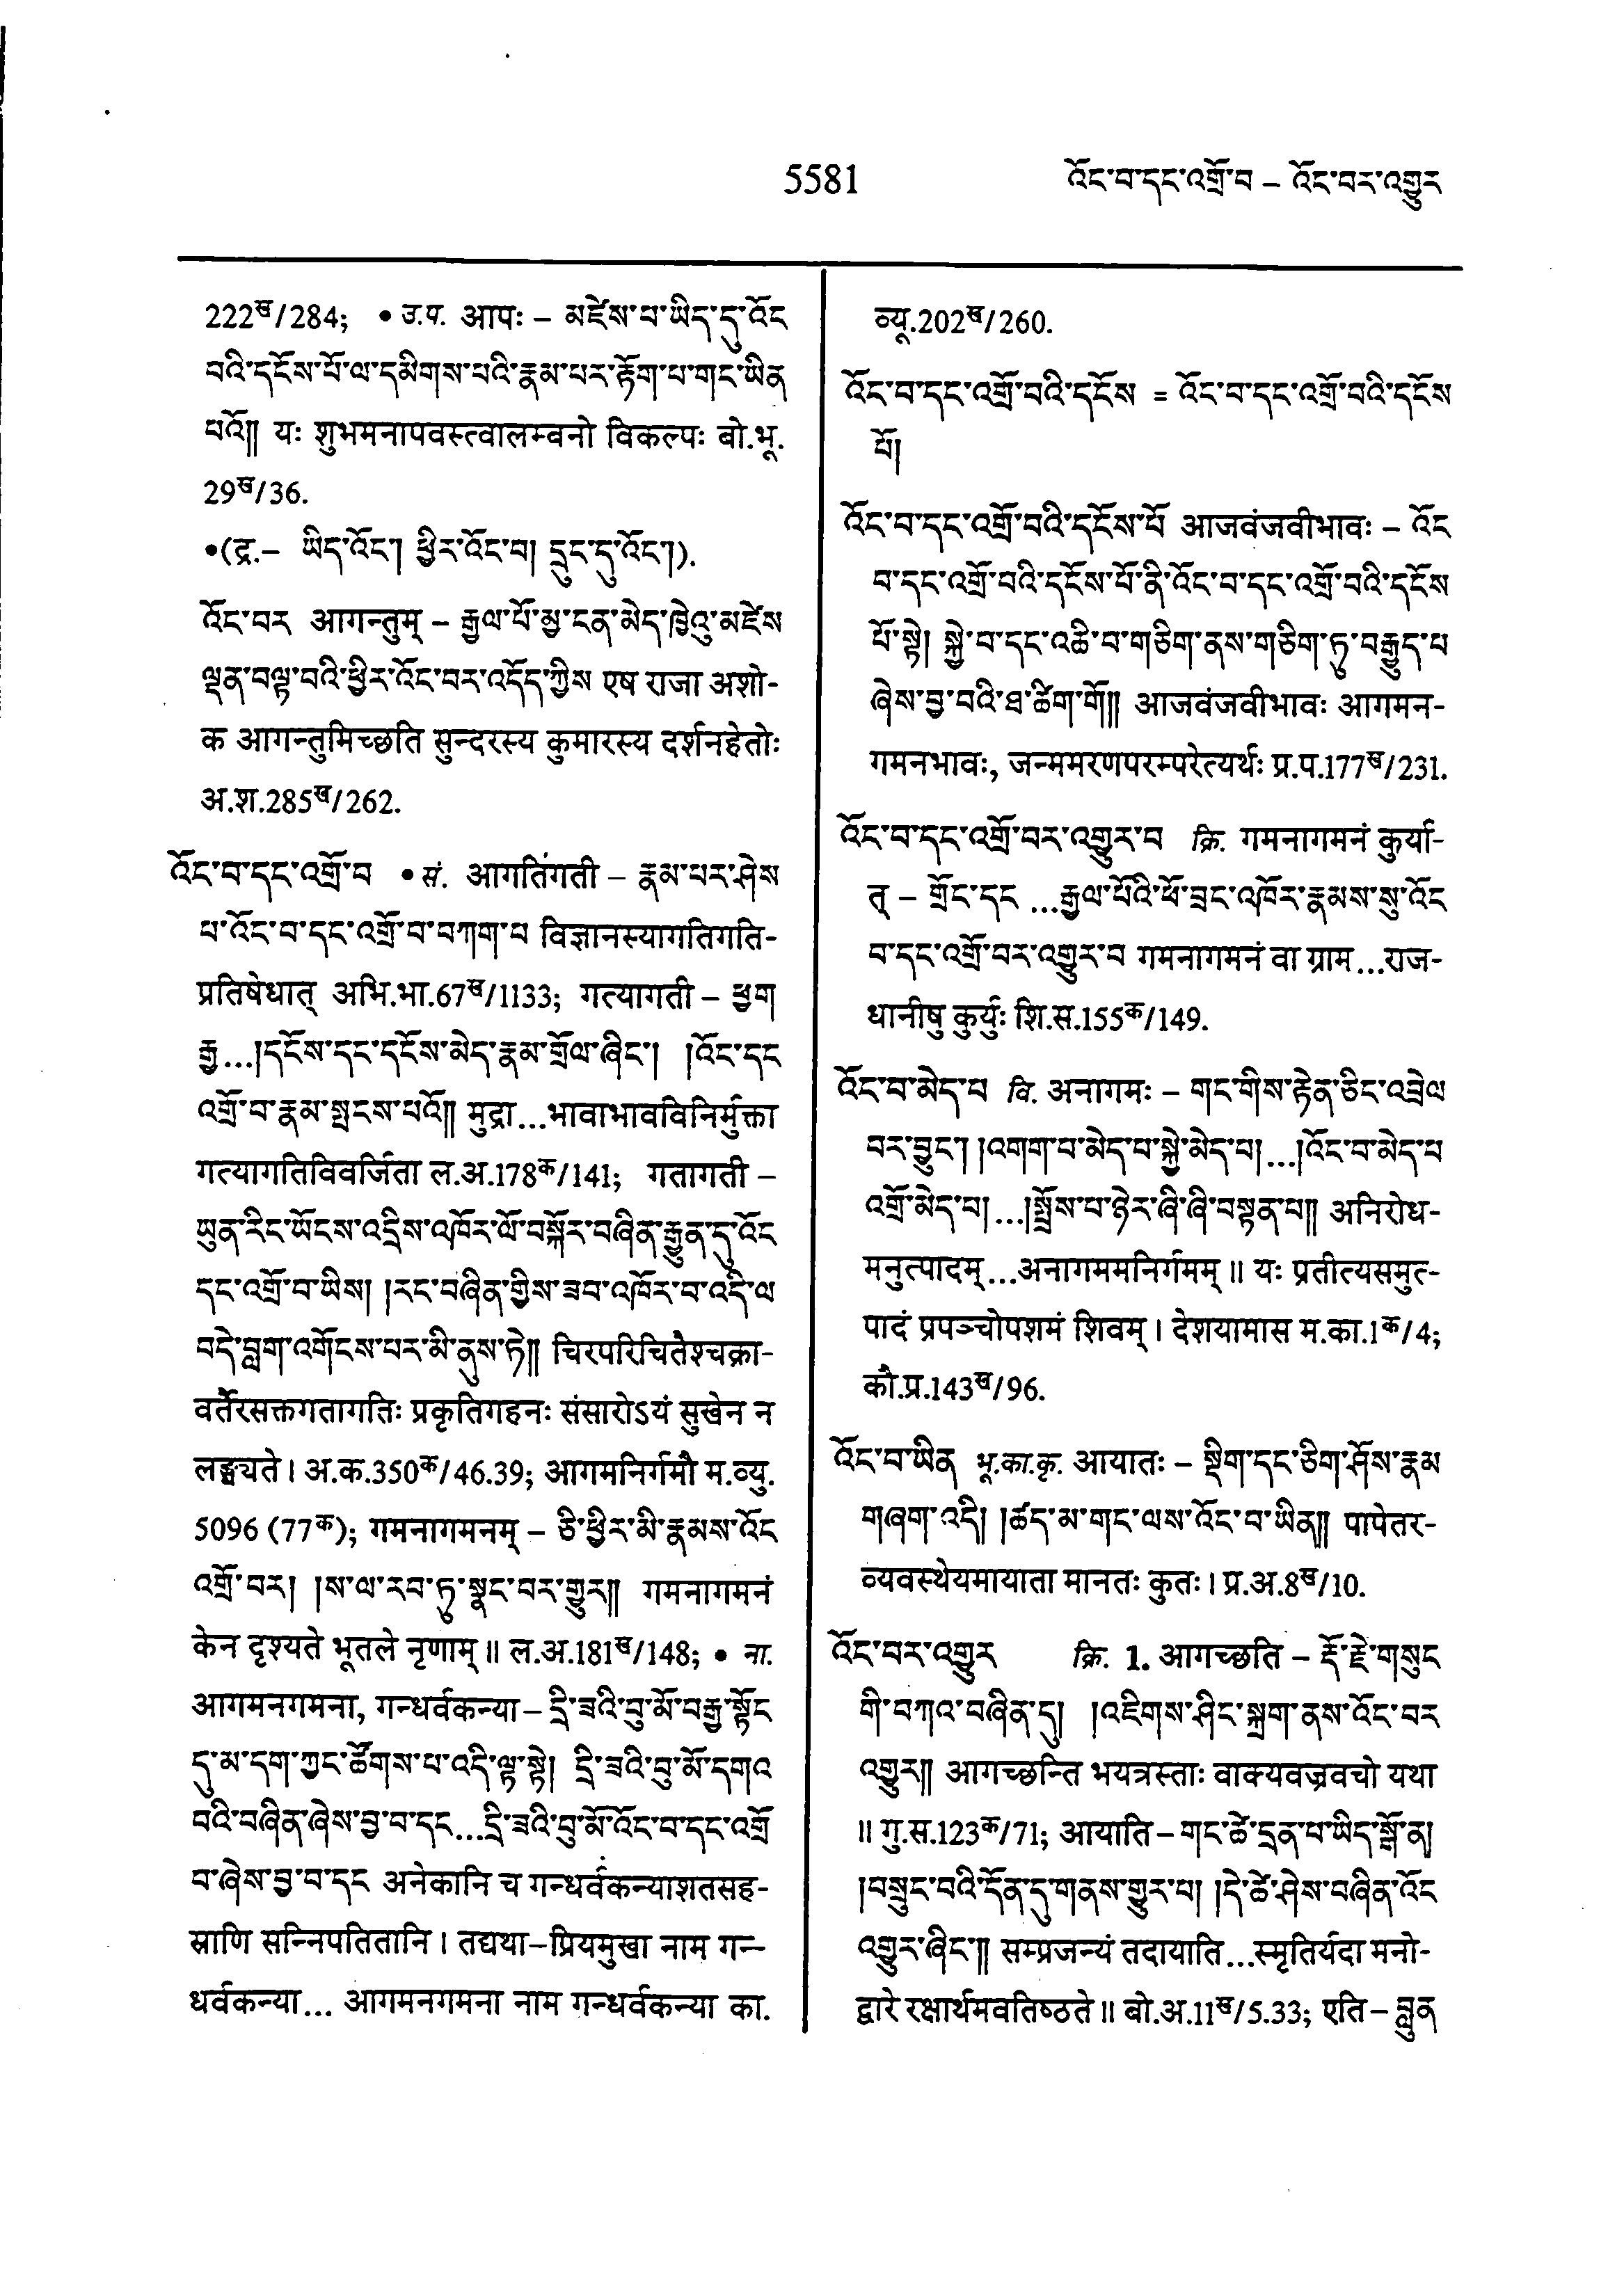 5581
འོང་བ་དང་འགྲོ་བ – འོང་བར་འགྱུར
222ख/284; • उ.प. आपः – མཛེས་པ་ཡིད་དུ་འོང
བའི་དངོས་པོ་ལ་དམིགས་པའི་རྣམ་པར་རྟོག་པ་གང་ཡིན
པའོ༎ यः शुभमनापवस्त्वालम्बनो विकल्पः बो.भू.
29ख/36.
•(द्र.– ཡིད་འོང་། ཕྱིར་འོང་བ། དྲུང་དུ་འོང་།).
འོང་བར आगन्तुम् – རྒྱལ་པོ་མྱ་ངན་མེད་ཁྱེའུ་མཛེས
ལྡན་བལྟ་བའི་ཕྱིར་འོང་བར་འདོད་ཀྱིས एष राजा अशो-
क आगन्तुमिच्छति सुन्दरस्य कुमारस्य दर्शनहेतोः
अ.श.285ख/262.
འོང་བ་དང་འགྲོ་བ • सं. आगतिगती – རྣམ་པར་ཤེས
པ་འོང་བ་དང་འགྲོ་བ་བཀག་པ विज्ञानस्यागतिगति-
प्रतिषेधात् अभि.भा.67ख/1133; गत्यागती – ཕྱག
རྒྱ...།དངོས་དང་དངོས་མེད་རྣམ་གྲོལ་ཞིང་། །འོང་དང
འགྲོ་བ་རྣམ་སྤངས་པའོ༎ मुद्रा...भावाभावविनिर्मुक्ता
गत्यागतिविवर्जिता ल.अ.178क/141; गतागती –
ཡུན་རིང་ཡོངས་འདྲིས་འཁོར་ལོ་བསྐོར་བཞིན་རྒྱུན་དུ་འོང
དང་འགྲོ་བ་ཡིས། །རང་བཞིན་གྱིས་ཟབ་འཁོར་བ་འདི་ལ
བདེ་བླག་འགོངས་པར་མི་ནུས་ཏེ༎ चिरपरिचितैश्चक्रा-
वर्तैरसक्तगतागतिः प्रकृतिगहनः संसारोऽयं सुखेन न
लङ्घ्यते । अ.क.350क/46.39; आगमनिर्गमौ म.व्यु.
5096 (77क); गमनागमनम् – ཅི་ཕྱིར་མི་རྣམས་འོང
འགྲོ་བར། །ས་ལ་རབ་ཏུ་སྣང་བར་གྱུར༎ गमनागमनं
केन दृश्यते भूतले नृणाम् ॥ ल.अ.181ख/148; • ना.
आगमनगमना, गन्धर्वकन्या – དྲི་ཟའི་བུ་མོ་བརྒྱ་སྟོང
དུ་མ་དག་ཀྱང་ཚོགས་པ་འདི་ལྟ་སྟེ། དྲི་ཟའི་བུ་མོ་དགའ
བའི་བཞིན་ཞེས་བྱ་བ་དང...དྲི་ཟའི་བུ་མོ་འོང་བ་དང་འགྲོ
བ་ཞེས་བྱ་བ་དང अनेकानि च गन्धर्वकन्याशतसह-
स्राणि सन्निपतितानि । तद्यथा–प्रियमुखा नाम गन्-
धर्वकन्या... आगमनगमना नाम गन्धर्वकन्या का.
व्यू.202ख/260.
འོང་བ་དང་འགྲོ་བའི་དངོས = འོང་བ་དང་འགྲོ་བའི་དངོས
པོ།
འོང་བ་དང་འགྲོ་བའི་དངོས་པོ आजवंजवीभावः – འོང
བ་དང་འགྲོ་བའི་དངོས་པོ་ནི་འོང་བ་དང་འགྲོ་བའི་དངོས
པོ་སྟེ། སྐྱེ་བ་དང་འཆི་བ་གཅིག་ནས་གཅིག་ཏུ་བརྒྱུད་པ
ཞེས་བྱ་བའི་ཐ་ཚིག་གོ༎ आजवंजवीभावः आगमन-
गमनभावः, जन्ममरणपरम्परेत्यर्थः प्र.प.177ख/231.
འོང་བ་དང་འགྲོ་བར་འགྱུར་བ क्रि. गमनागमनं कुर्या-
त् – གྲོང་དང ...རྒྱལ་པོའི་ཕོ་བྲང་འཁོར་རྣམས་སུ་འོང
བ་དང་འགྲོ་བར་འགྱུར་བ गमनागमनं वा ग्राम...राज-
धानीषु कुर्युः शि.स.155क/149.
འོང་བ་མེད་པ वि. अनागमः – གང་གིས་རྟེན་ཅིང་འབྲེལ
བར་བྱུང་། །འགག་པ་མེད་པ་སྐྱེ་མེད་པ།...།འོང་བ་མེད་པ
འགྲོ་མེད་པ།...།སྤྲོས་པ་ཉེར་ཞི་ཞི་བསྟན་པ༎ अनिरोध-
मनुत्पादम्...अनागममनिर्गमम् ॥ यः प्रतीत्यसमुत्-
पादं प्रपञ्चोपशमं शिवम् । देशयामास म.का.1क/4;
कौ.प्र.143ख/96.
འོང་བ་ཡིན भू.का.कृ. आयातः – སྡིག་དང་ཅིག་ཤོས་རྣམ
གཞག་འདི། །ཚད་མ་གང་ལས་འོང་བ་ཡིན༎ पापेतर-
व्यवस्थेयमायाता मानतः कुतः । प्र.अ.8ख/10.
འོང་བར་འགྱུར क्रि. 1. आगच्छति – རྡོ་རྗེ་གསུང
གི་བཀའ་བཞིན་དུ། །འཇིགས་ཤིང་སྐྲག་ནས་འོང་བར
འགྱུར༎ आगच्छन्ति भयत्रस्ताः वाक्यवज्रवचो यथा
॥ गु.स.123क/71; आयाति – གང་ཚེ་དྲན་པ་ཡིད་སྒོ་ན།
།བསྲུང་བའི་དོན་དུ་གནས་གྱུར་པ། །དེ་ཚེ་ཤེས་བཞིན་འོང
འགྱུར་ཞིང་༎ सम्प्रजन्यं तदायाति...स्मृतिर्यदा मनो-
द्वारे रक्षार्थमवतिष्ठते ॥ बो.अ.11ख/5.33; एति – བླུན